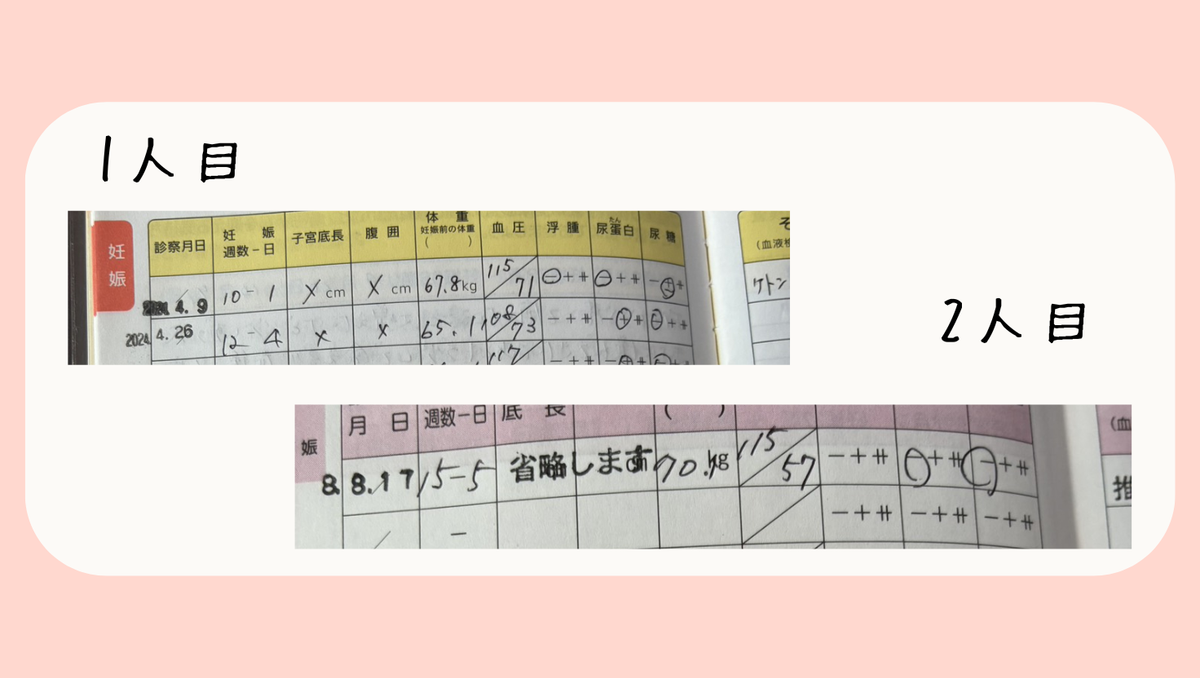 1人目
妊娠
診察月日 妊娠週数-日 子宮底長 腹囲 体重 妊娠前の体重 ( ) 血圧 浮腫 尿蛋白 たん 尿糖
(血液検
4. 9 10-1 X cm X cm 67.8kg 115/71 ⊖ + ⧺ ⊖ + ⧺ - ⊕ ⧺ ケトン
2024. 4. 26 12-4 X X 65.1 108/73 - + ⧺ - ⊕ ⧺ ⊖ + ⧺
117
2人目
娠
月日 週数-日 底長 ( ) (血
8. 8.17 15-5 省略します 70. kg 115/57 - + ⧺ ⊖ + ⧺ ⊖ + ⧺ 推
/ - / - + ⧺ - + ⧺ - + ⧺